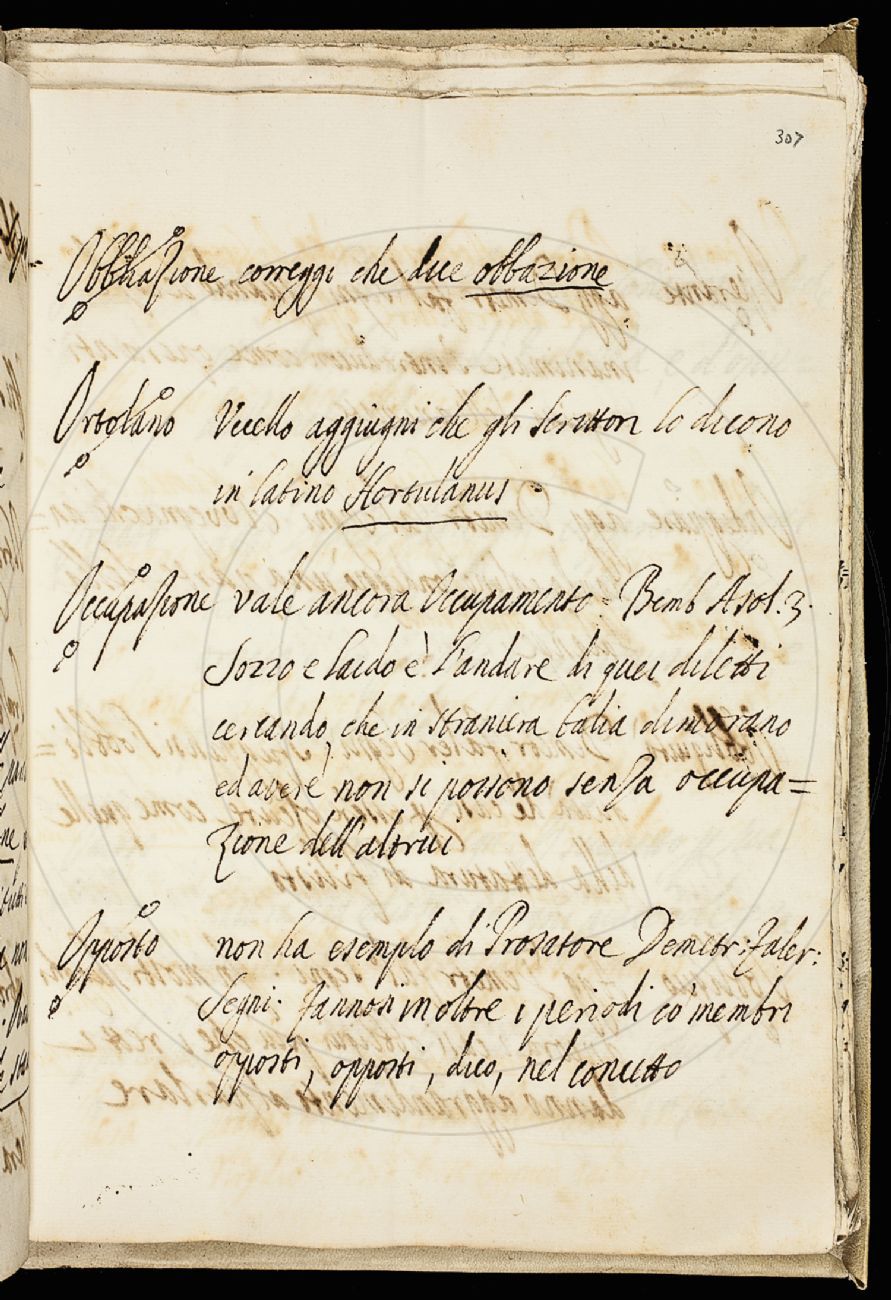 307
Obbliazione correggi che dice obbazione
Ortolano Vccello aggiugni che gli Scrittori lo dicono
in latino Hortulanus
Occupazione vale ancora Occupamento = Bemb Asol. 3.
Sozzo e laido è l'andare di quei diletti
cercando, che in straniera balia dimorano
ed avere non si possono senza occupa=
zione dell'altrui
Opposto non ha esemplo di Prosatore Demetr: Faler:
Segni. Fannosi inoltre i periodi co' membri
opposti, opposti, dico, nel concetto